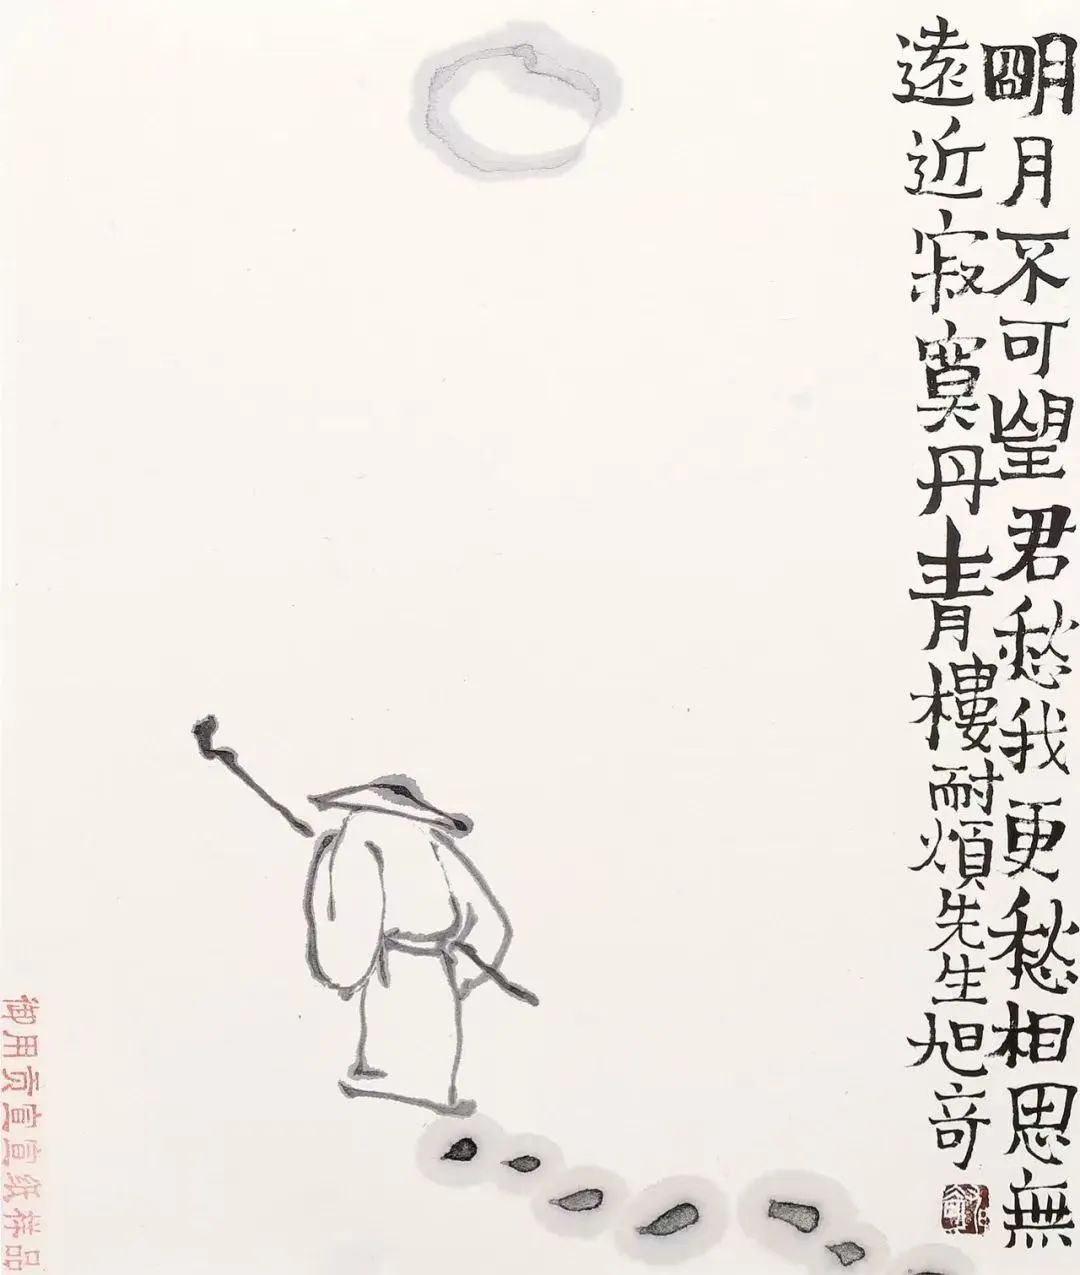 朙月不可望君愁我更愁相思無
遠近寂寞丹青樓耐煩先生旭奇
御用贡宣宣纸样品